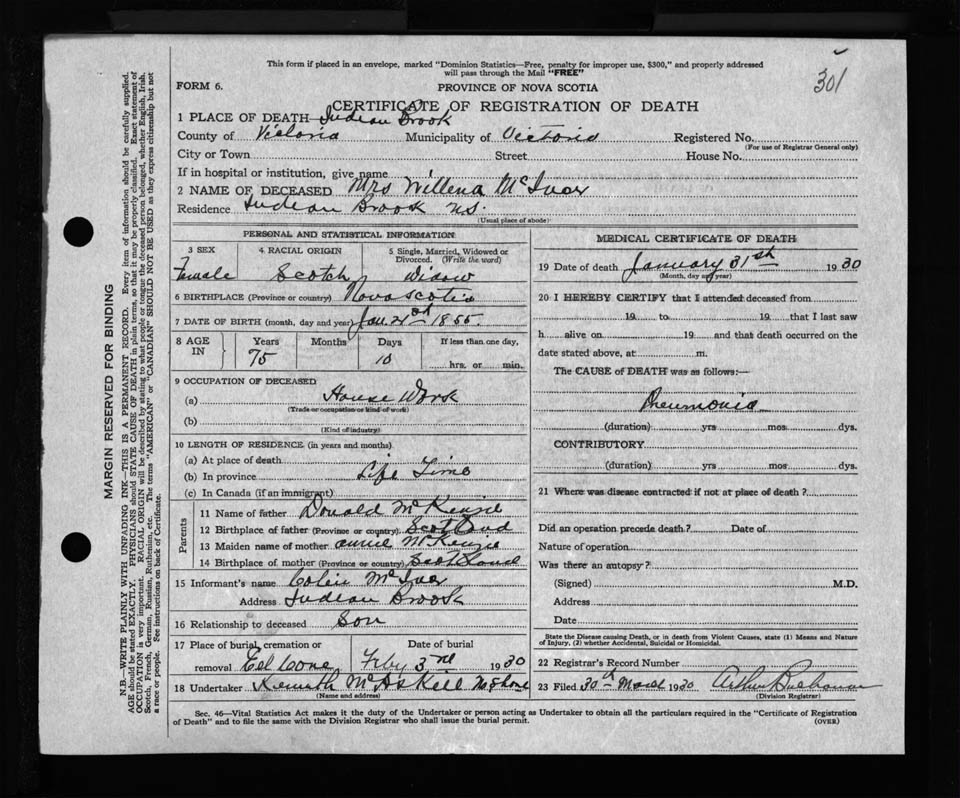 301
This form if placed in an envelope, marked "Dominion Statistics—Free, penalty for improper use, $300," and properly addressed
will pass through the Mail "FREE"
FORM 6.
PROVINCE OF NOVA SCOTIA
CERTIFICATE OF REGISTRATION OF DEATH
1 PLACE OF DEATH Indian Brook
County of Victoria Municipality of Victoria Registered No.
(For use of Registrar General only)
City or Town Street House No.
If in hospital or institution, give name
2 NAME OF DECEASED Mrs Willena McIver
Residence Indian Brook N.S.
(Usual place of abode)
PERSONAL AND STATISTICAL INFORMATION
3 SEX 4 RACIAL ORIGIN 5 Single, Married, Widowed or
Divorced. (Write the word)
Female Scotch Widow
6 BIRTHPLACE (Province or country) Nova Scotia
7 DATE OF BIRTH (month, day and year) Jan. 21st 1855.
8 AGE IN Years Months Days If less than one day,
75 10 hrs. or min.
9 OCCUPATION OF DECEASED
(a) House Work
(Trade or occupation or kind of work)
(b)
(Kind of industry)
10 LENGTH OF RESIDENCE (in years and months)
(a) At place of death
(b) In province Life Time
(c) In Canada (if an immigrant)
Parents
11 Name of father Donald McKenzie
12 Birthplace of father (Province or country) Scotland
13 Maiden name of mother Annie McKenzie
14 Birthplace of mother (Province or country) Scotland
15 Informant's name Colin McIver
Address Indian Brook
16 Relationship to deceased Son
17 Place of burial, cremation or Date of burial
removal Eel Cove Feby 3rd 1930
18 Undertaker Kenneth McAskill N. Shore
(Name and address)
MEDICAL CERTIFICATE OF DEATH
19 Date of death January 31st 1930
(Month, day and year)
20 I HEREBY CERTIFY that I attended deceased from
19 to 19 that I last saw
h alive on 19 and that death occurred on the
date stated above, at m.
The CAUSE of DEATH was as follows:—
Pneumonia
(duration) yrs mos dys.
CONTRIBUTORY
(duration) yrs mos dys.
21 Where was disease contracted if not at place of death?
Did an operation precede death? Date of
Nature of operation
Was there an autopsy?
(Signed) M.D.
Address
Date
State the Disease causing Death, or in death from Violent Causes, state (1) Means and Nature
of Injury, (2) whether Accidental, Suicidal or Homicidal.
22 Registrar's Record Number
23 Filed 30th March 1930 Arthur Buchanan
(Division Registrar)
Sec. 46—Vital Statistics Act makes it the duty of the Undertaker or person acting as Undertaker to obtain all the particulars required in the "Certificate of Registration
of Death" and to file the same with the Division Registrar who shall issue the burial permit.
(OVER)
MARGIN RESERVED FOR BINDING
N.B.—WRITE PLAINLY WITH UNFADING INK—THIS IS A PERMANENT RECORD. Every item of information should be carefully supplied.
AGE should be stated EXACTLY. PHYSICIANS should STATE CAUSE OF DEATH in plain terms, so that it may be properly classified. Exact statement of
OCCUPATION is very important. RACIAL ORIGIN will be described by stating to what people or tongue the deceased person belonged, whether English, Irish,
Scotch, French, German, Russian, Ruthenian, etc. The terms "AMERICAN" or "CANADIAN" SHOULD NOT BE USED as they express citizenship but not
a race or people. See instructions on back of Certificate.